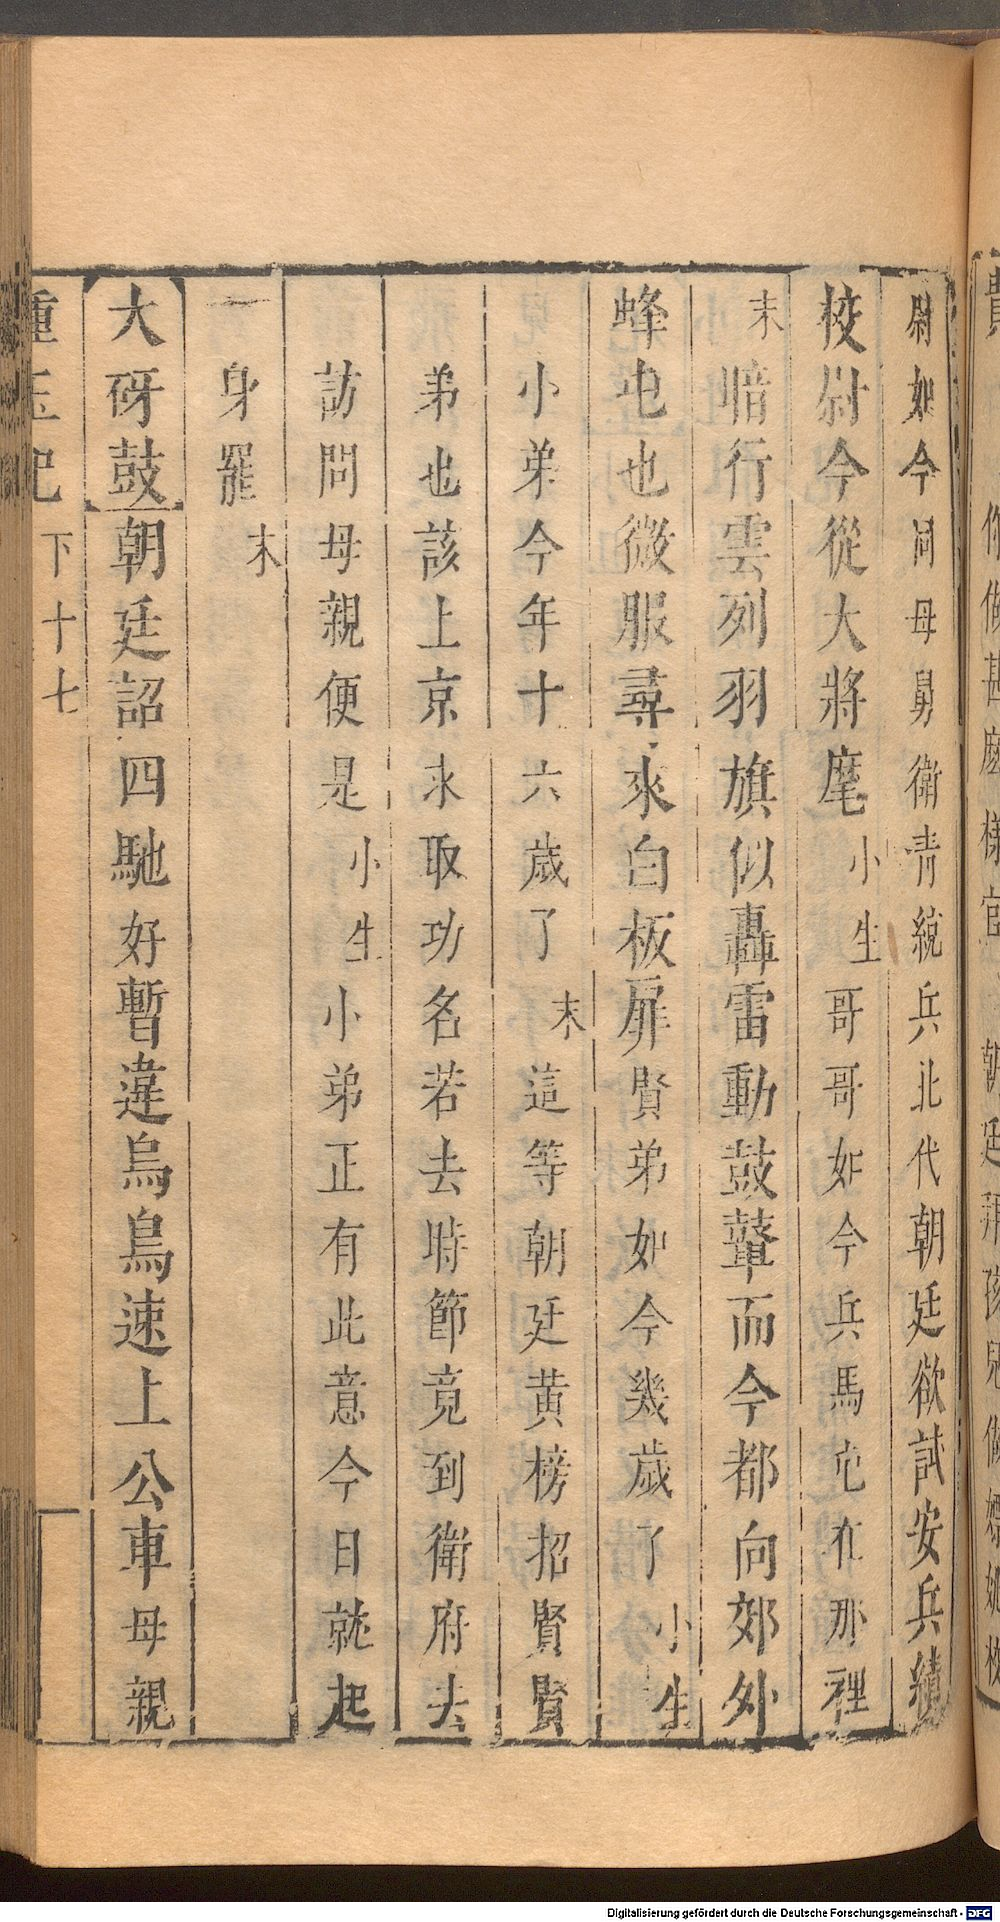 尉如今同母舅衛青統兵北代朝廷欲試安兵績
校尉今從大將麾小生哥哥如今兵馬屯在那裡
末暗行雲列羽旗似轟雷動鼓鼙而今都向郊外
蜂屯也微服尋來白板扉賢弟如今幾歲了小生
小弟今年十六歲了末這等朝廷黄榜招賢賢
弟也該上京求取功名若去時節竟到衛府去
訪問母親便是小生小弟正有此意今日就起
身罷末
大砑鼓朝廷詔四馳好暫違烏鳥速上公車母親
種玉記 下 十七
Digitalisierung gefördert durch die Deutsche Forschungsgemeinschaft - DFG